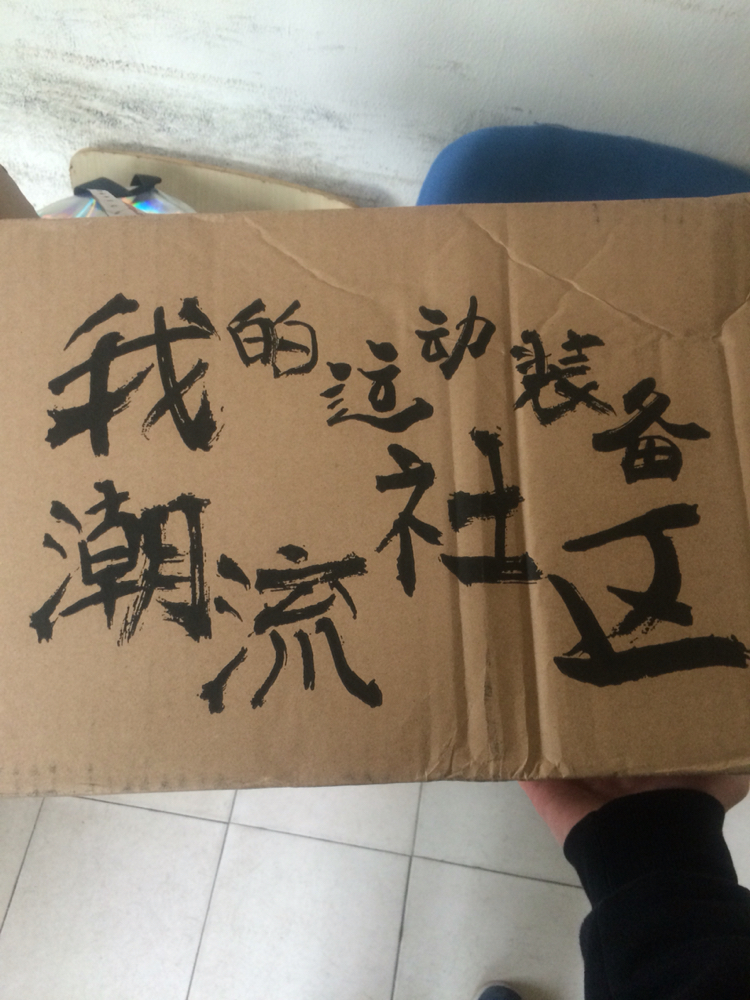 我的运动装备
潮流社区